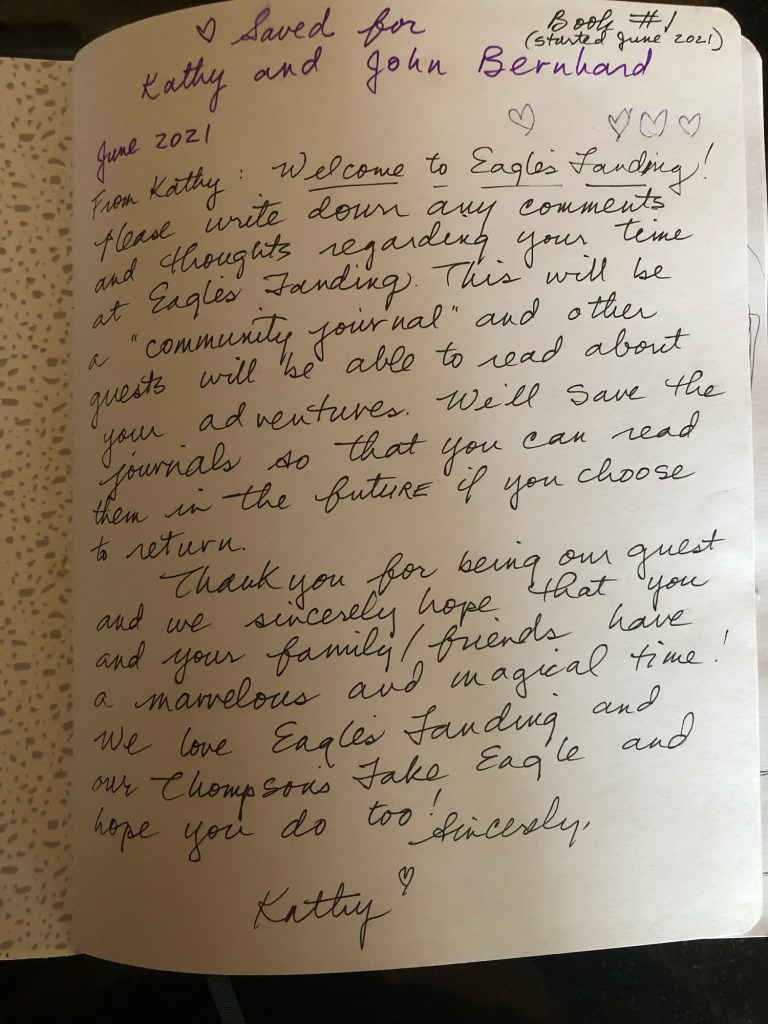 ♡ Saved for
Kathy and John Bernhard
Book #1
(started June 2021)
June 2021
From Kathy: Welcome to Eagle's Landing!
Please write down any comments
and thoughts regarding your time
at Eagle's Landing. This will be
a "community journal" and other
guests will be able to read about
your adventures. We'll save the
journals so that you can read
them in the future if you choose
to return.
Thank you for being our guest
and we sincerely hope that you
and your family/friends have
a marvelous and magical time!
We love Eagle's Landing and
our Thompson's Lake Eagle and
hope you do too! Sincerely,
Kathy ♡